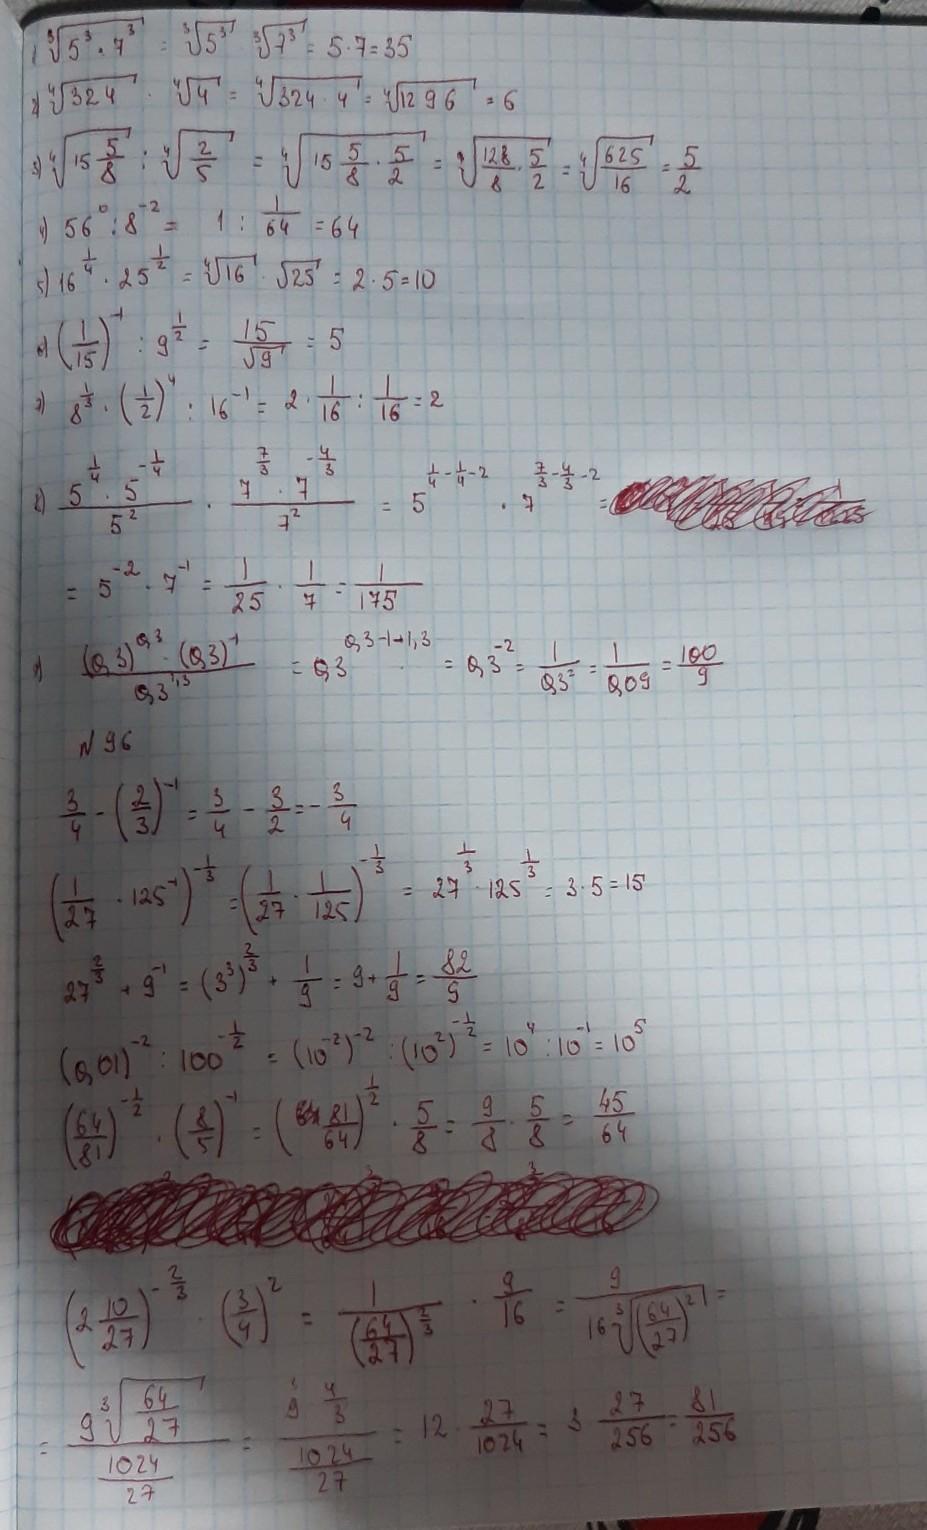 1) ∛(5³ · 7³) = ∛5³ ∛7³ = 5·7=35
2) ∜324 · ∜4 = ∜(324 · 4) = ∜1296 = 6
3) ∜(15 5/8) : ∜(2/5) = ∜(15 5/8 · 5/2) = ∜(128/8 · 5/2) = ∜(625/16) = 5/2
4) 56⁰ : 8⁻² = 1 : 1/64 = 64
5) 16^(1/4) · 25^(1/2) = ∜16 · √25 = 2·5=10
6) (1/15)⁻¹ : 9^(1/2) = 15/√9 = 5
7) 8^(1/3) · (1/2)⁴ : 16⁻¹ = 2 · 1/16 : 1/16 = 2
8) (5^(1/4) · 5^(-1/4))/5² · (7^(7/3) · 7^(-4/3))/7² = 5^(1/4-1/4-2) · 7^(7/3-4/3-2) =
= 5⁻² · 7⁻¹ = 1/25 · 1/7 = 1/175
9) ((0,3)^(0,3) · (0,3)⁻¹)/0,3^(1,3) = 0,3^(0,3-1-1,3) = 0,3⁻² = 1/0,3² = 1/0,09 = 100/9
N 96
3/4 - (2/3)⁻¹ = 3/4 - 3/2 = - 3/4
(1/27 · 125⁻¹)^(-1/3) = (1/27 · 1/125)^(-1/3) = 27^(1/3) · 125^(1/3) = 3·5=15
27^(2/3) + 9⁻¹ = (3³)^(2/3) + 1/9 = 9 + 1/9 = 82/9
(0,01)⁻² : 100^(-1/2) = (10⁻²)⁻² : (10²)^(-1/2) = 10⁴ : 10⁻¹ = 10⁵
(64/81)^(-1/2) · (8/5)⁻¹ = (81/64)^(1/2) · 5/8 = 9/8 · 5/8 = 45/64
(2 10/27)^(-2/3) · (3/4)² = 1/(64/27)^(2/3) · 9/16 = 9/(16∛((64/27)²)) =
= (9∛(64/27))/(1024/27) = (9 4/3)/(1024/27) = 12 · 27/1024 = 3 27/256 = 81/256